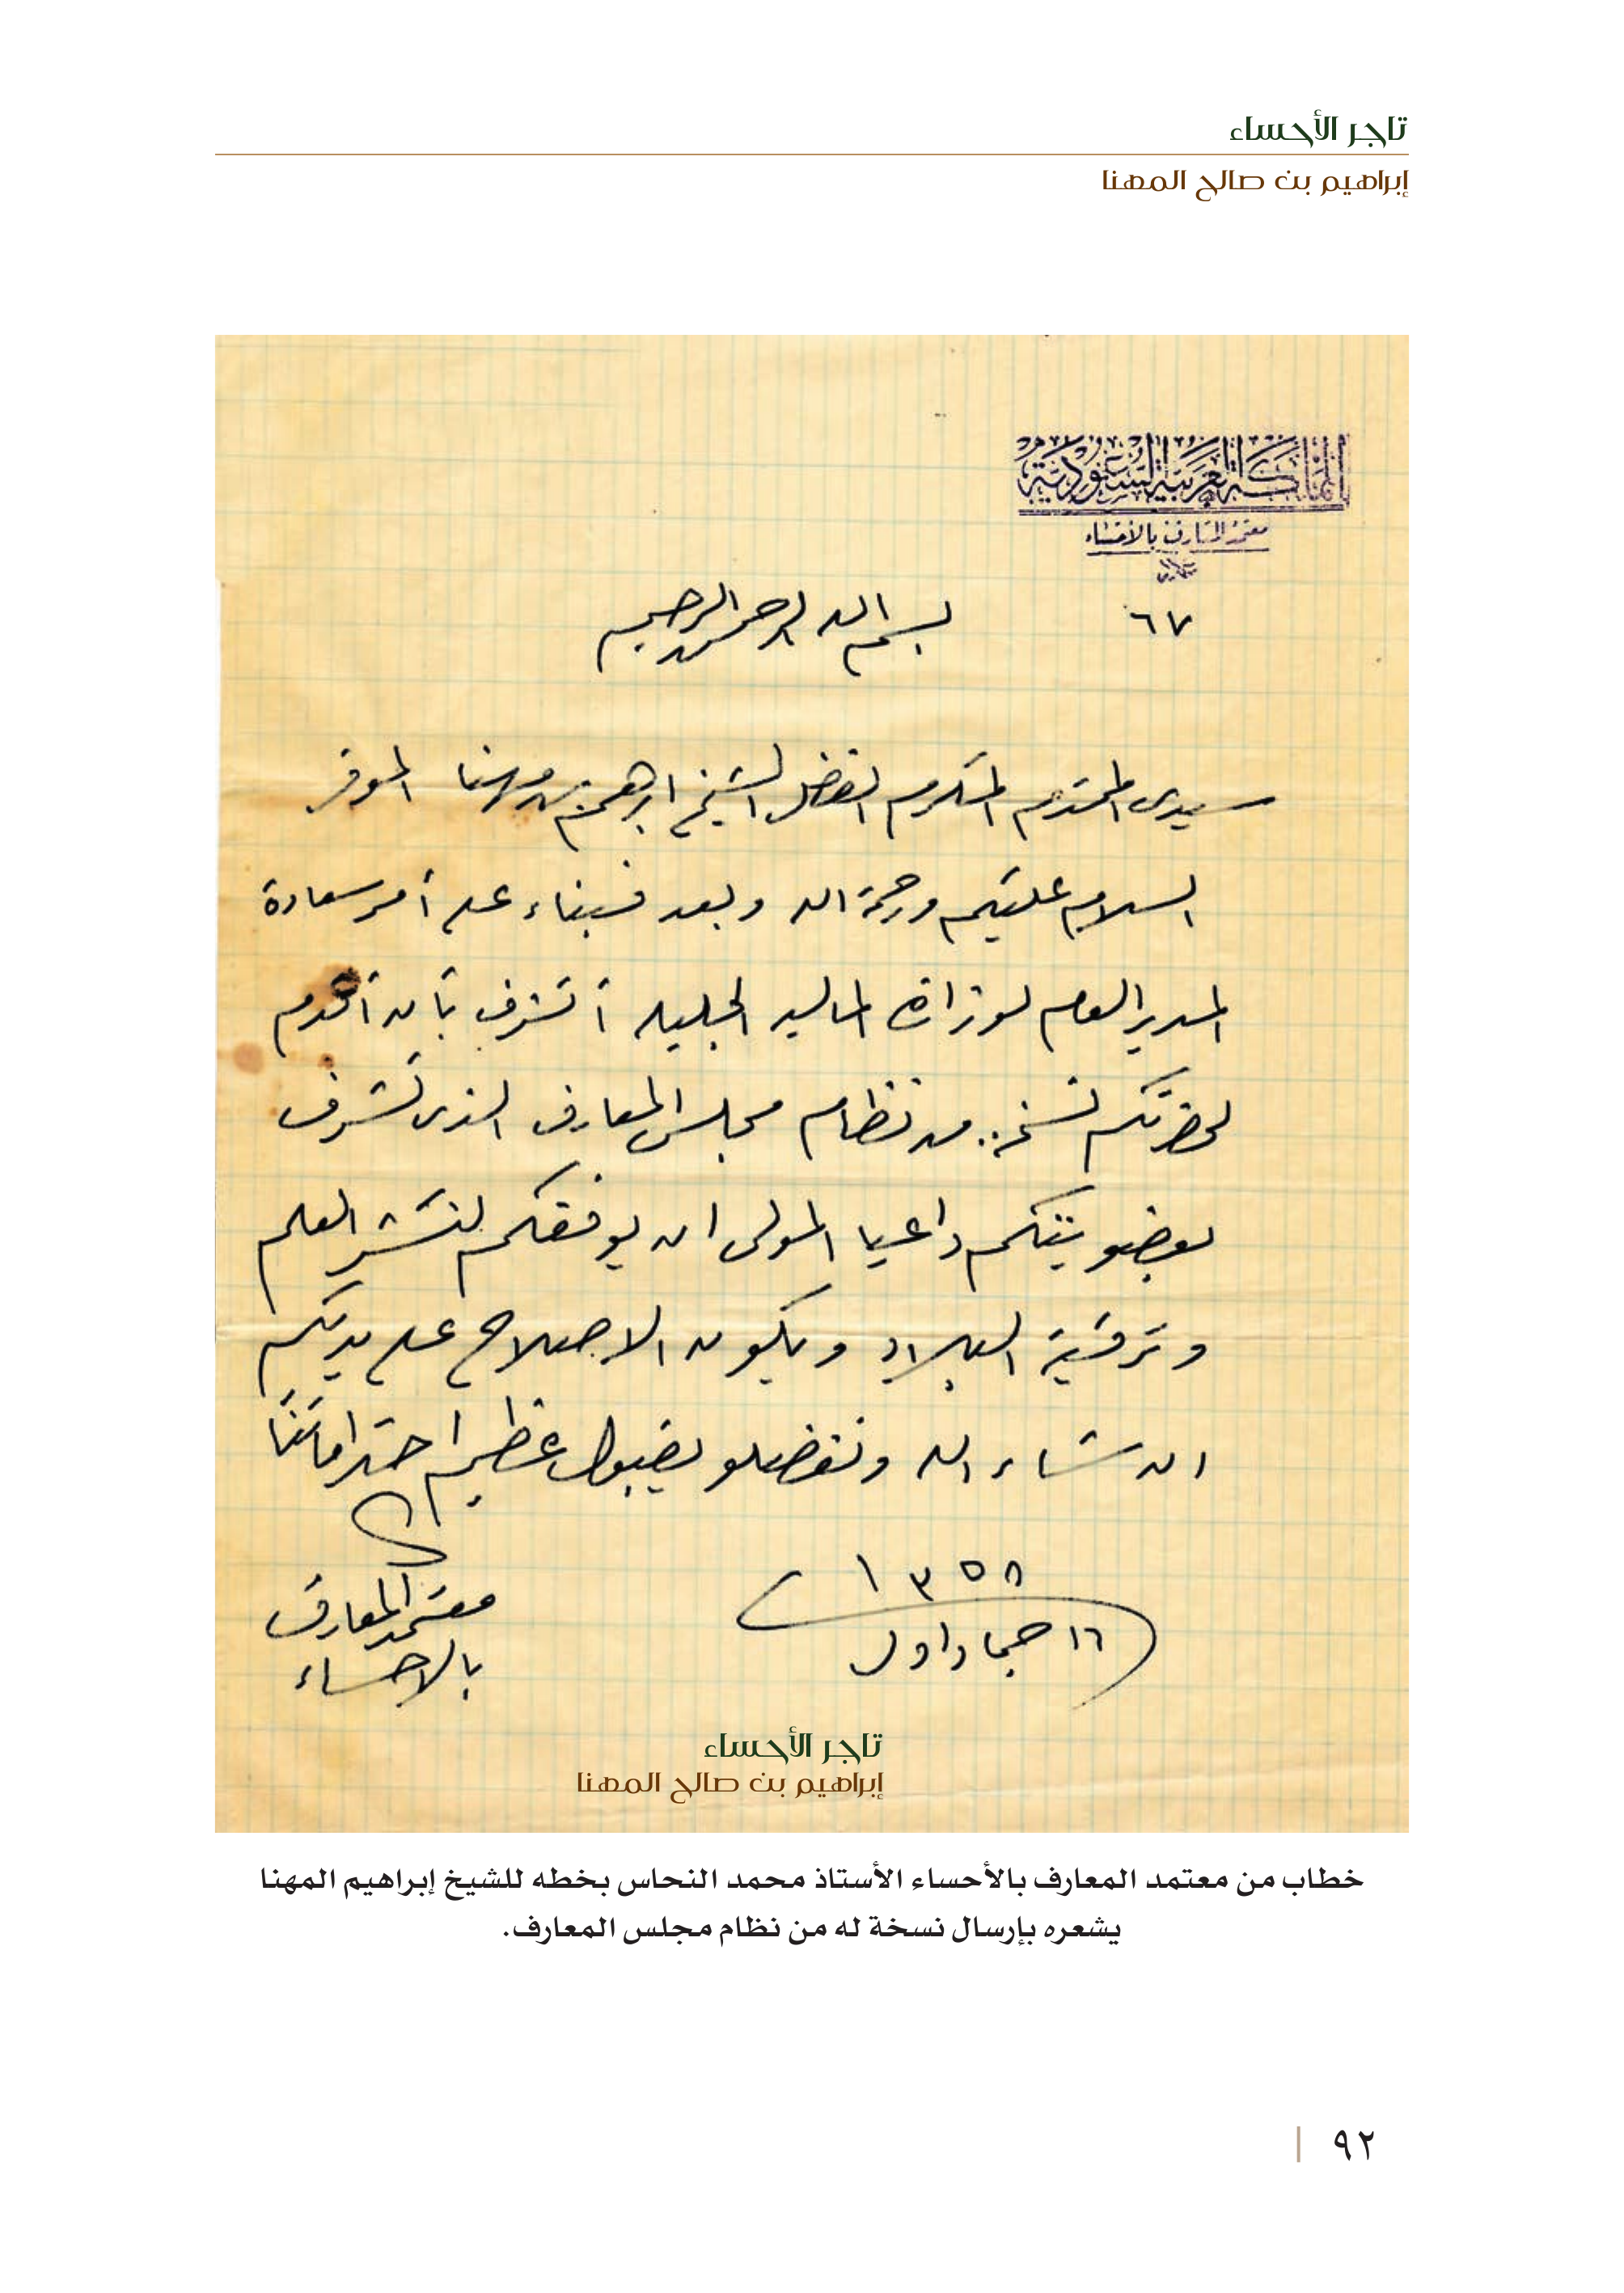 تاجر الأحساء
إبراهيم بن صالح المهنا
المملكة العربية السعودية
معتمد المعارف بالأحساء
٦٧
بسم الله الرحمن الرحيم
سيدى المحترم المكرم الفضل الشيخ ابرهيم بن مهنا الموقر
السلام عليكم ورحمة الله وبعد فبناء على أمر سعادة
المدير العام لوزارة الماليه الجليله أتشرف بأن أقدم
لحضرتكم نسخة من نظام مجلس المعارف الذى تشرف
بعضويتكم داعيا المولى ان يوفقكم لنشر العلم
وترقية البلاد ويكون الاصلاح على يديكم
ان شاء الله وتفضلو بقبول عظيم احتراماتنا
١٣٥٨
١٦ جماد اول
معتمد المعارف
بالاحساء
تاجر الأحساء
إبراهيم بن صالح المهنا
خطاب من معتمد المعارف بالأحساء الأستاذ محمد النحاس بخطه للشيخ إبراهيم المهنا
يشعره بإرسال نسخة له من نظام مجلس المعارف.
٩٢